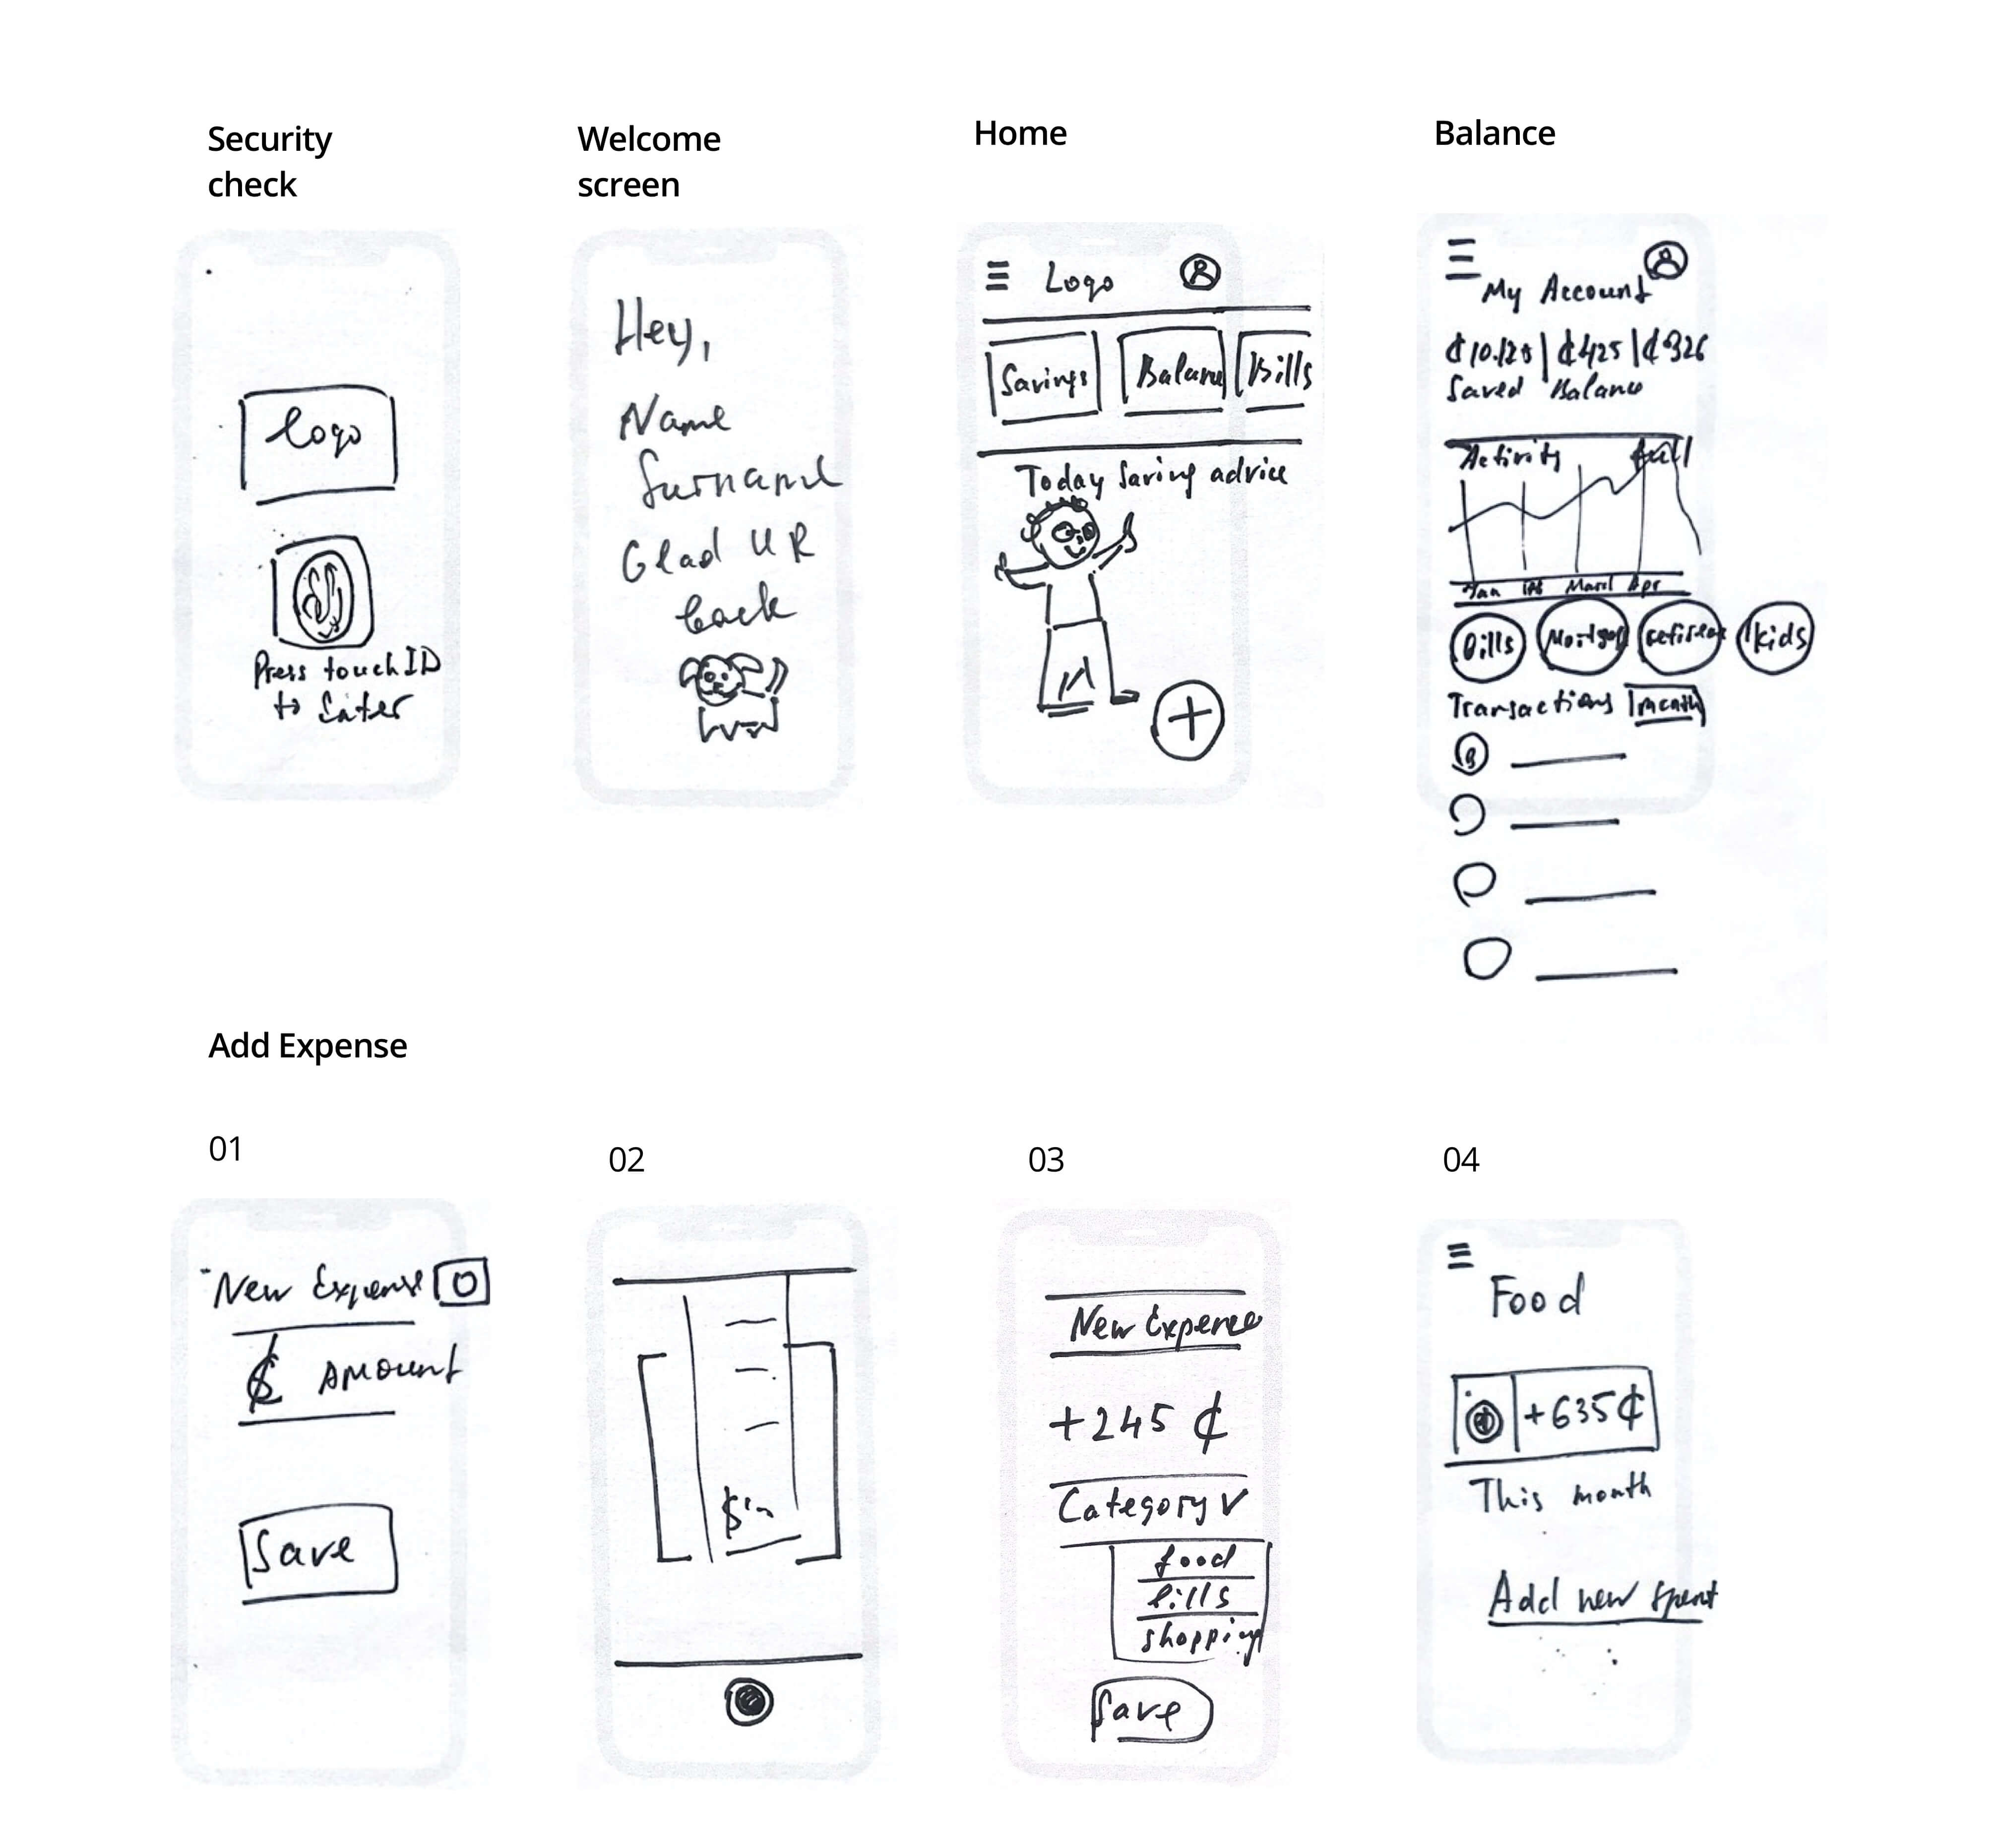 Security
check
logo
Press touch ID
to Enter
Welcome
screen
Hey,
Name
Surname
Glad UR
back
Home
Logo
Savings
Balance
Bills
Today saving advice
Balance
My Account
| ₵425 | ₵326
Saved Balance
Activity full
Jan March Apr
Bills
kids
Transactions month
Add Expense
01
New Expense
₵ AMOUNT
Save
02
03
New Expense
+245 ₵
Category
food
bills
shopping
Save
04
Food
+635₵
This month
Add new spent